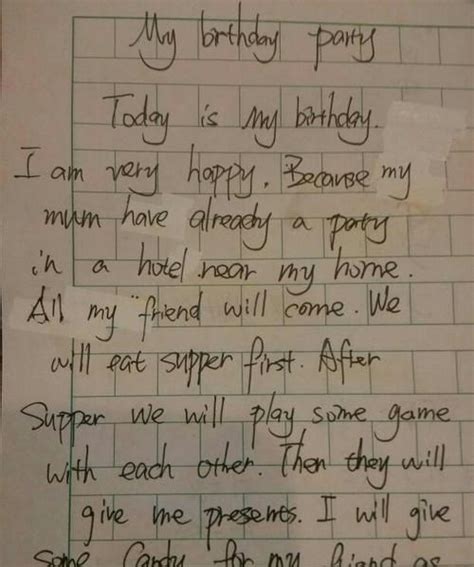 My birthday party
Today is my birthday.
I am very happy. Because my
mum have already a party
in a hotel near my home.
All my friend will come. We
will eat supper first. After
Supper we will play some game
with each other. Then they will
give me presents. I will give
some Candy for my friend as